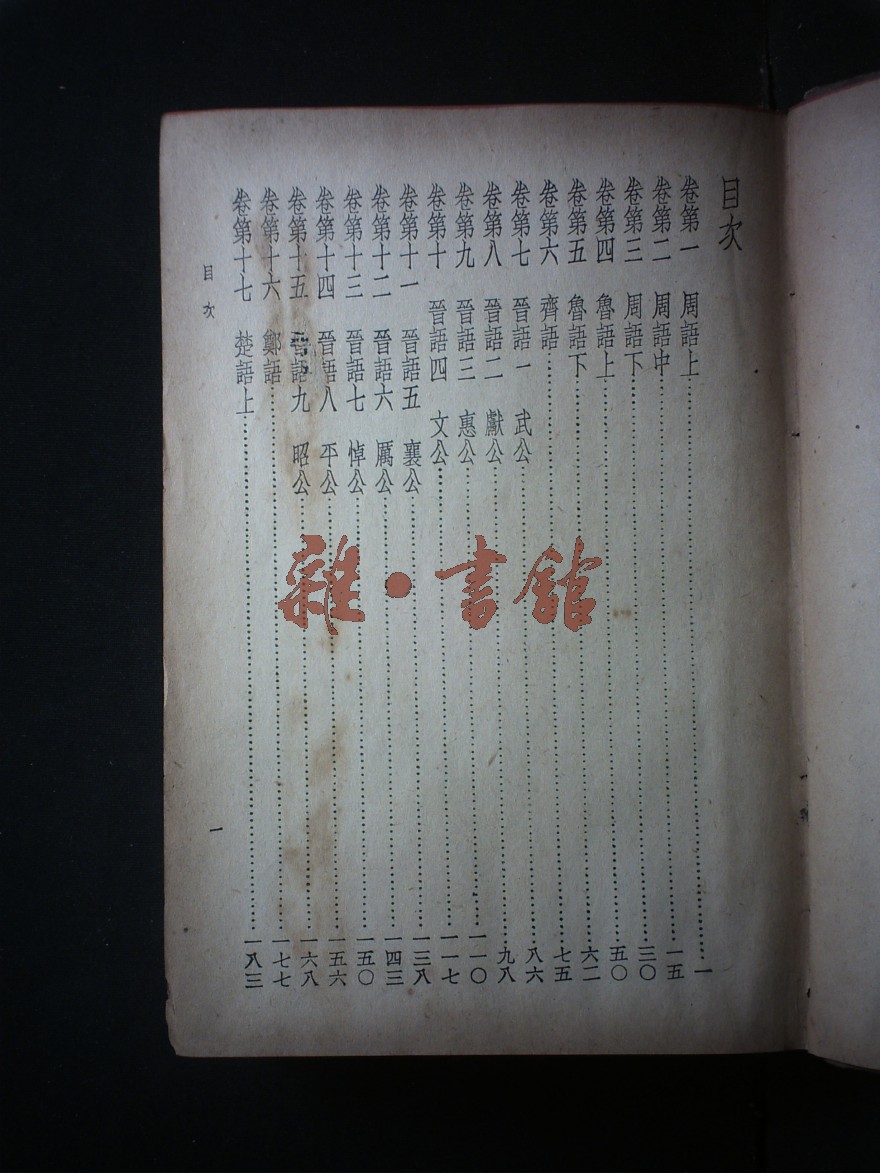 目次
卷第一 周語上……一
卷第二 周語中……一五
卷第三 周語下……三〇
卷第四 魯語上……五〇
卷第五 魯語下……六二
卷第六 齊語……七五
卷第七 晉語一 武公……八六
卷第八 晉語二 獻公……九八
卷第九 晉語三 惠公……一一〇
卷第十 晉語四 文公……一一七
卷第十一 晉語五 襄公……一三八
卷第十二 晉語六 厲公……一四三
卷第十三 晉語七 悼公……一五〇
卷第十四 晉語八 平公……一五六
卷第十五 晉語九 昭公……一六八
卷第十六 鄭語……一七七
卷第十七 楚語上……一八三
目次 一
雜·書館